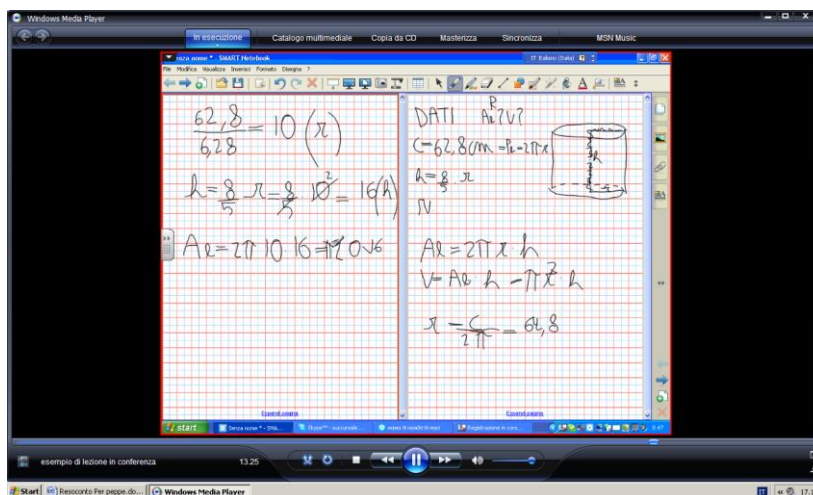 Windows Media Player
In esecuzione Catalogo multimediale Copia da CD Masterizza Sincronizza MSN Music
Senza nome * - SMART Notebook
IT Italiano (Italia)
File Modifica Visualizza Inserisci Formato Disegna ?
62,8
6,28
= 10 (r)
h = 8/5 r = 8/5 · 10² = 16 (h)
Al = 2π 10 16
Espandi pagina
DATI Al? V?
C = 62,8 cm = 2πr
h = 8/5 r
Al = 2π r · h
V = Al · h = πr² · h
r = C/2π = 64,8
Espandi pagina
start Senza nome * - SMA... Skype™ - succursale... Registrazione in cors... 8.47
esempio di lezione in conferenza 13.25
Start Resoconto Per peppe.do... Windows Media Player IT